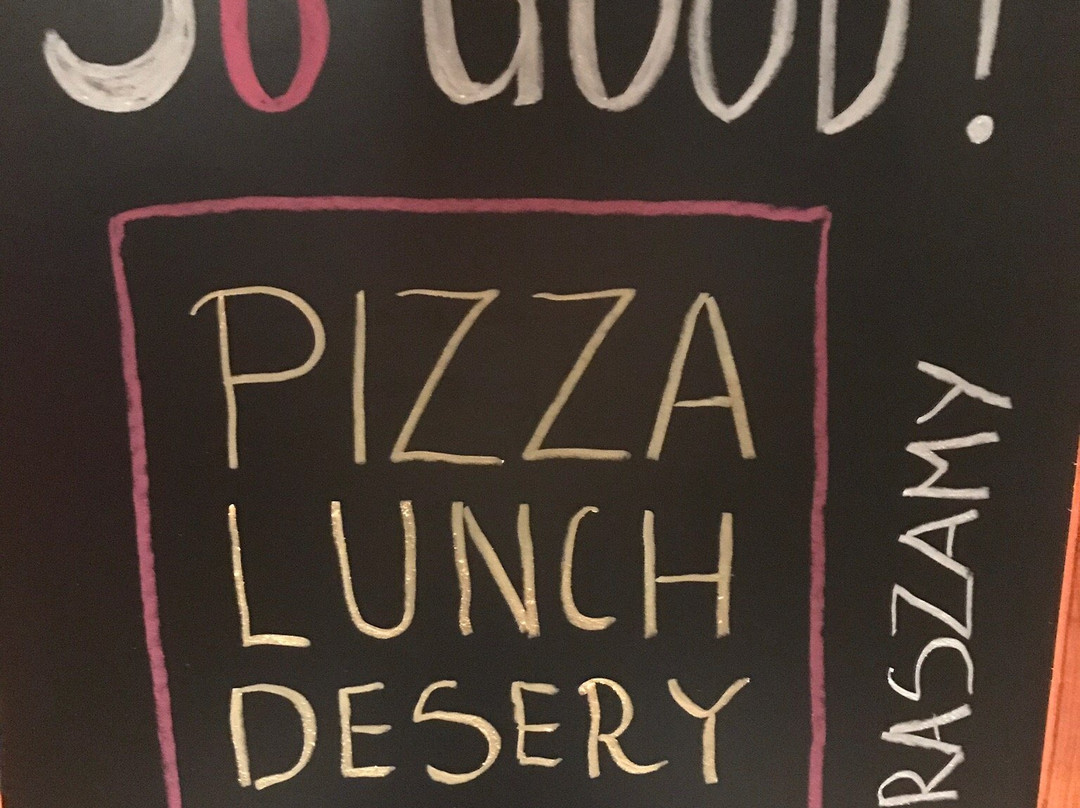 SO GOOD!
PIZZA
LUNCH
DESERY
RASZAMY